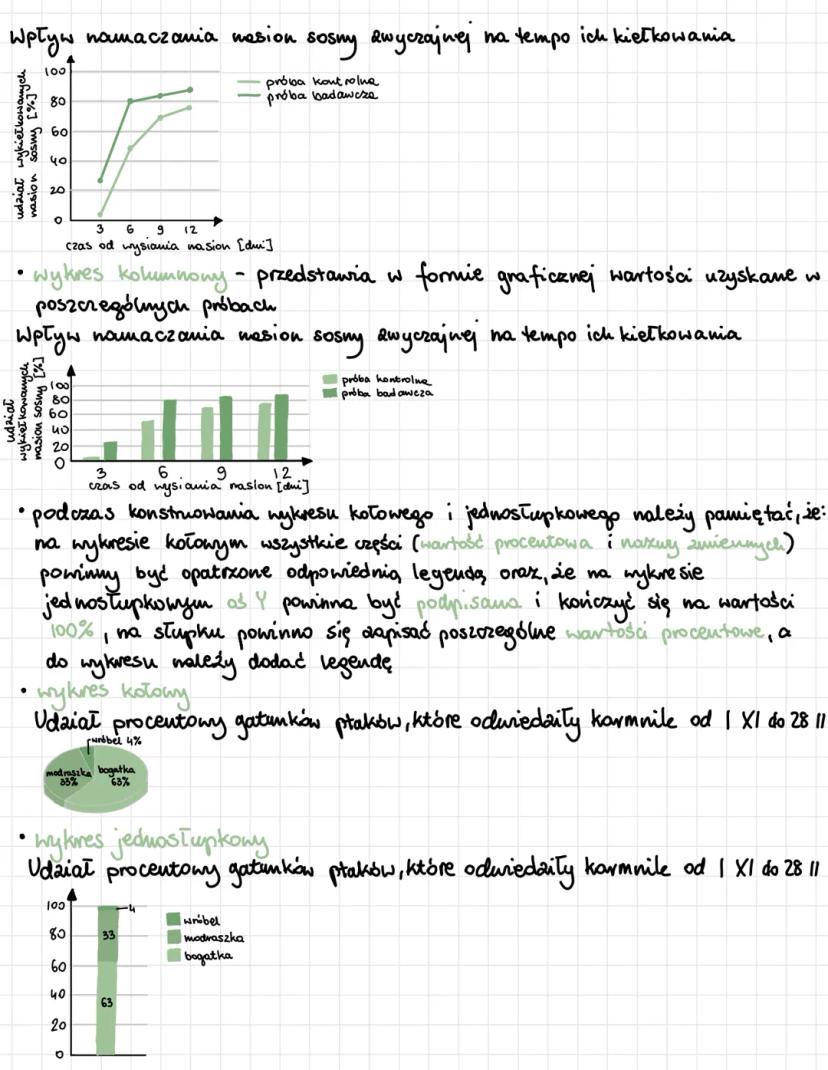 Wpływ namaczania nasion sosny zwyczajnej na tempo ich kiełkowania
udział wykiełkowanych
nasion sosny [%]
100
80
60
40
20
0
3 6 9 12
czas od wysiania nasion [dni]
próba kontrolna
próba badawcza
• wykres kolumnowy - przedstawia w formie graficznej wartości uzyskane w
poszczególnych próbach
Wpływ namaczania nasion sosny zwyczajnej na tempo ich kiełkowania
udział
wykiełkowanych
nasion sosny [%]
100
80
60
40
20
0
3 6 9 12
czas od wysiania nasion [dni]
próba kontrolna
próba badawcza
• podczas konstruowania wykresu kołowego i jednosłupkowego należy pamiętać, że:
na wykresie kołowym wszystkie części (wartość procentowa i nazwy zmiennych)
powinny być opatrzone odpowiednią legendą oraz, że na wykresie
jednosłupkowym oś Y powinna być podpisana i kończyć się na wartości
100%, na słupku powinno się zapisać poszczególne wartości procentowe, a
do wykresu należy dodać legendę
• wykres kołowy
Udział procentowy gatunków ptaków, które odwiedziły karmnik od 1 XI do 28 II
wróbel 4%
modraszka
33%
bogatka
63%
• wykres jednosłupkowy
Udział procentowy gatunków ptaków, które odwiedziły karmnik od 1 XI do 28 II
100
80
60
40
20
0
4
33
63
wróbel
modraszka
bogatka